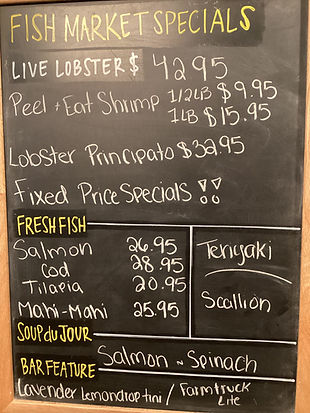 FISH MARKET SPECIALS
LIVE LOBSTER $ 42 95
Peel + Eat Shrimp 1/2LB $9.95
1LB $15.95
Lobster Principato $32.95
Fixed Price Specials !!
FRESH FISH
Salmon 26.95 Teriyaki
Cod 28.95
Tilapia 20.95 Scallion
Mahi-Mahi 25.95
SOUP du JOUR
Salmon ~ Spinach
BAR FEATURE
Lavender Lemondroptini / Farmtruck Lite